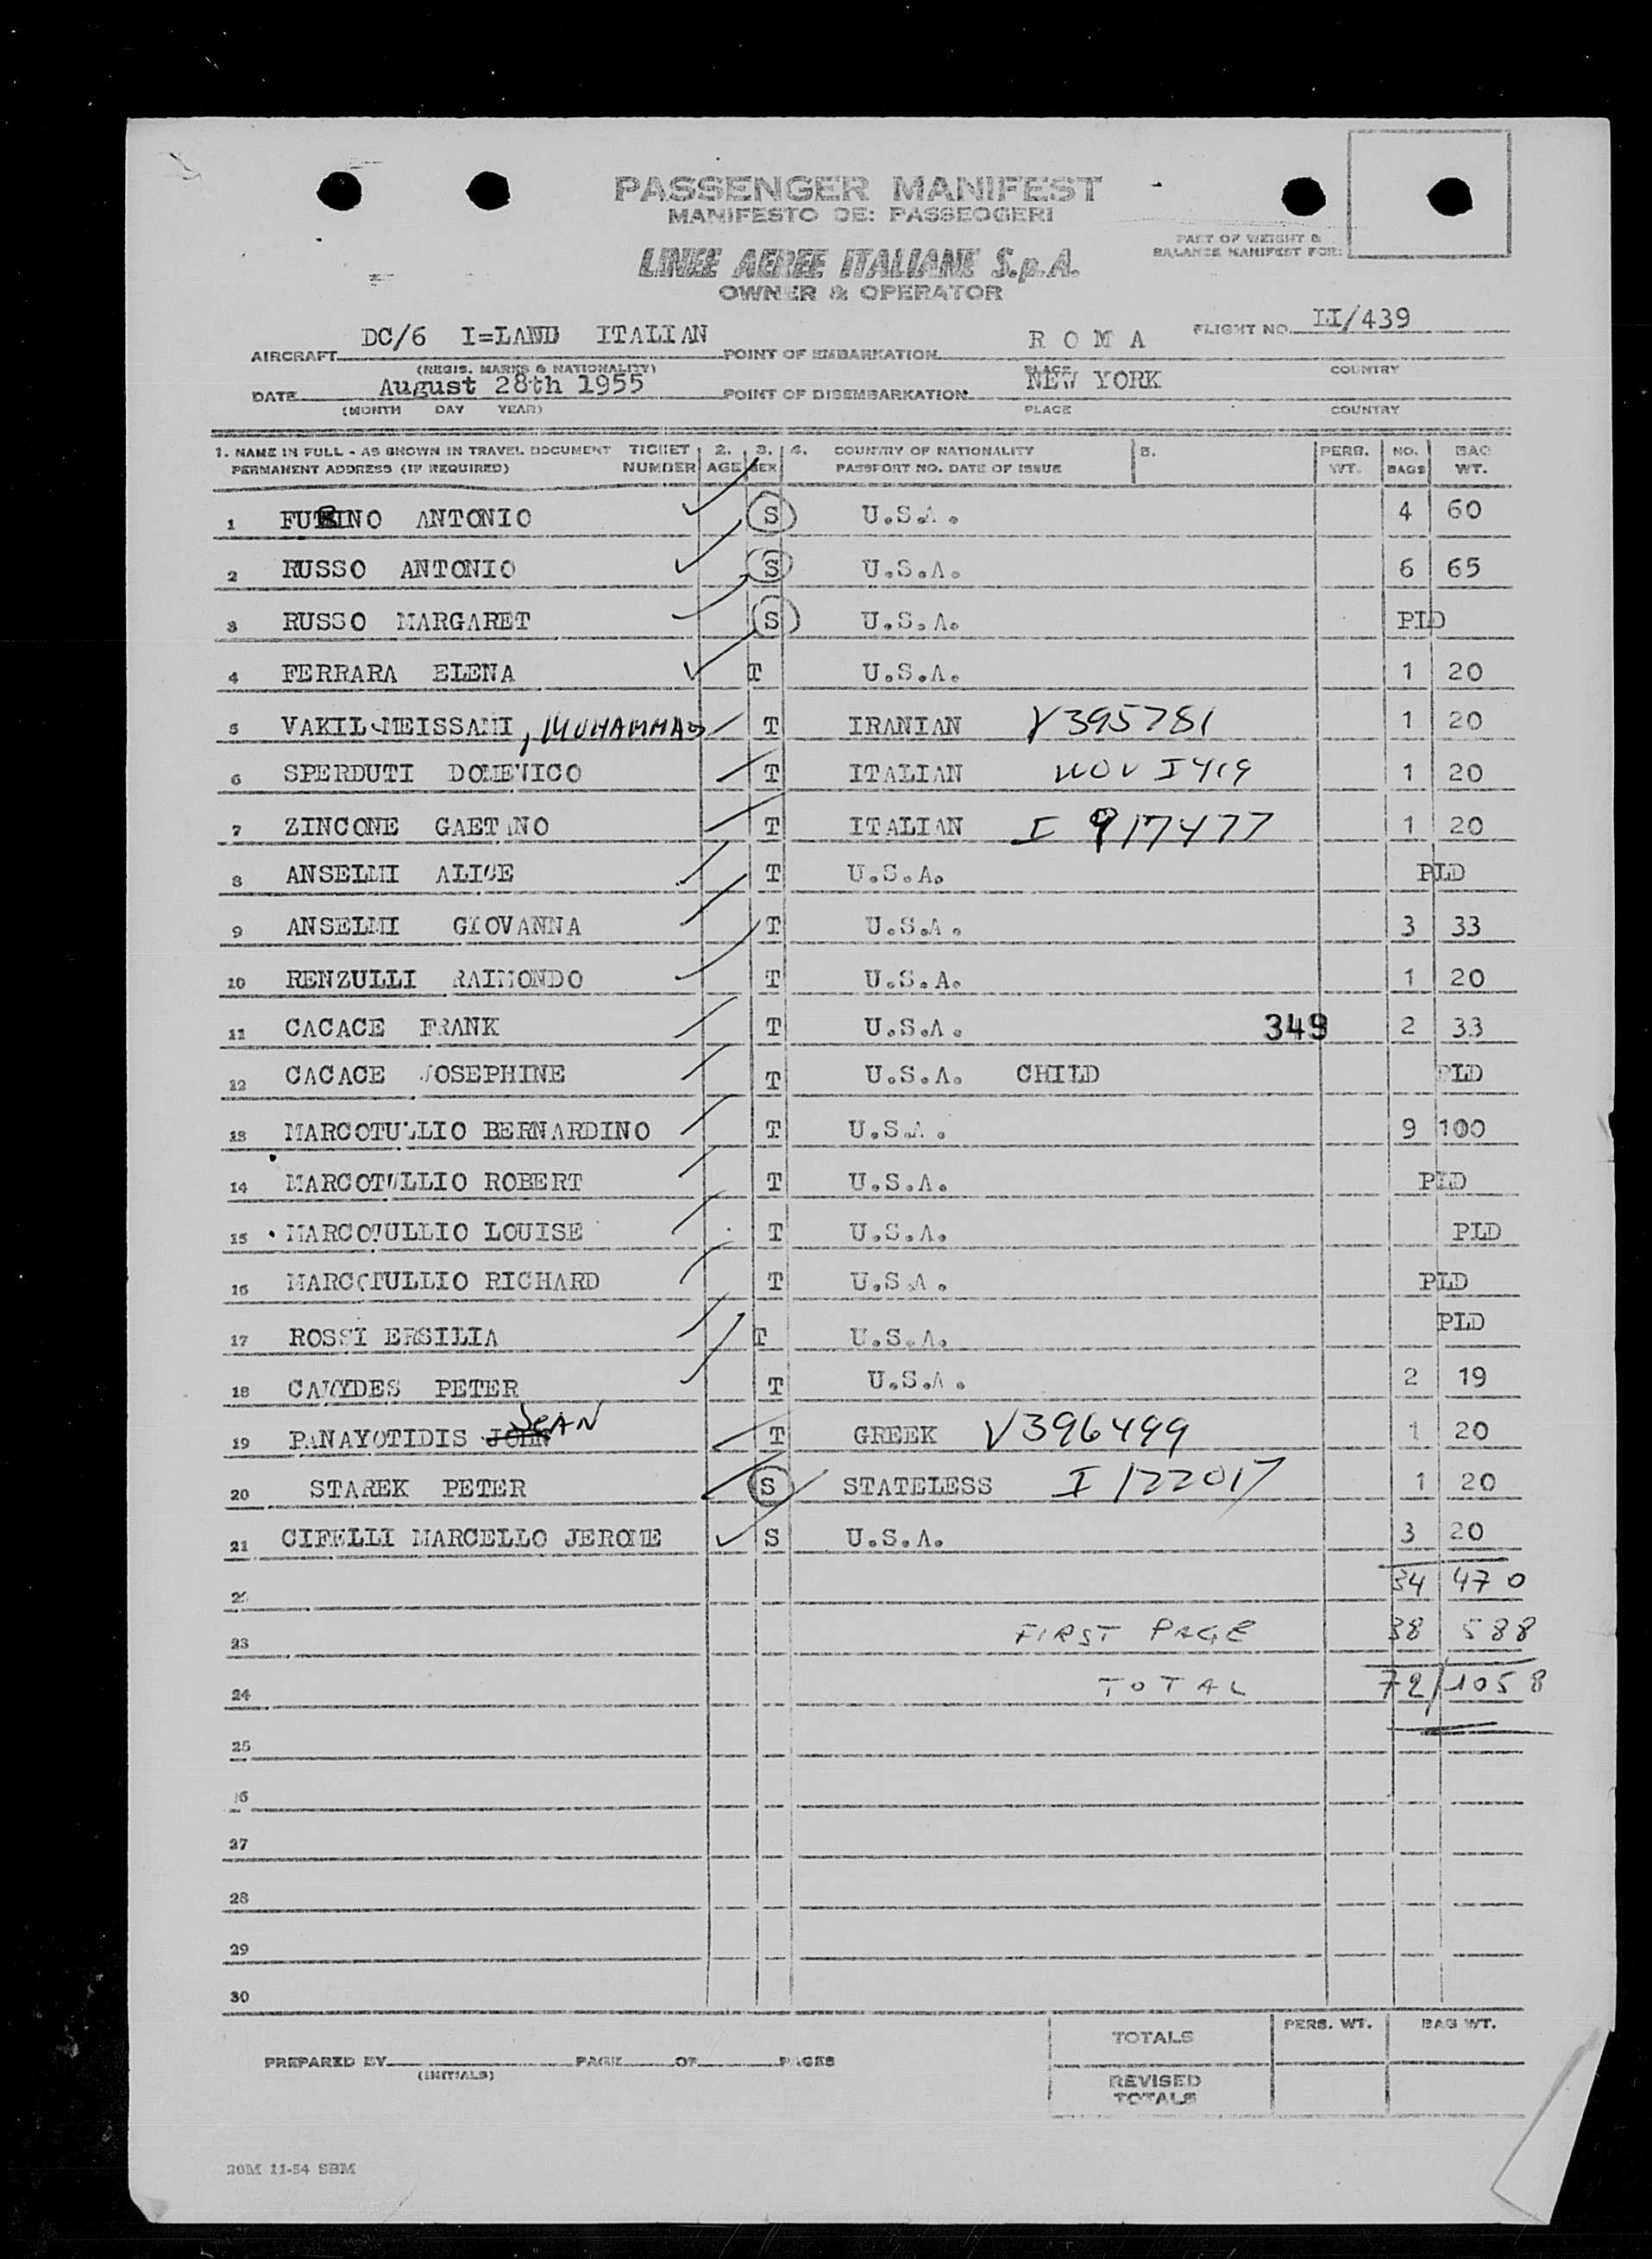 PASSENGER MANIFEST
MANIFESTO DE: PASSEOGERI
LINEE AEREE ITALIANE S.p.A.
OWNER & OPERATOR
PART OF WEIGHT &
BALANCE MANIFEST FOR:
AIRCRAFT DC/6 I=LAND ITALIAN POINT OF EMBARKATION R O M A FLIGHT NO. LI/439
(REGIS. MARKS & NATIONALITY) PLACE COUNTRY
DATE August 28th 1955 POINT OF DISEMBARKATION NEW YORK
(MONTH DAY YEAR) PLACE COUNTRY
1. NAME IN FULL - AS SHOWN IN TRAVEL DOCUMENT TICKET 2. 3. 4. COUNTRY OF NATIONALITY 5. PERS. NO. BAG
PERMANENT ADDRESS (IF REQUIRED) NUMBER AGE SEX PASSPORT NO. DATE OF ISSUE WT. BAGS WT.
1 ANTONIO S U.S.A. 4 60
2 RUSSO ANTONIO S U.S.A. 6 65
3 RUSSO MARGARET S U.S.A. PLD
4 FERRARA ELENA T U.S.A. 1 20
5 VAKIL MEISSAMI, MUHAMMAD T IRANIAN V395781 1 20
6 SPERDUTI DOMENICO T ITALIAN NOV I419 1 20
7 ZINCONE GAETANO T ITALIAN I 917477 1 20
8 ANSELMI ALICE T U.S.A. PLD
9 ANSELMI GIOVANNA T U.S.A. 3 33
10 RENZULLI RAIMONDO T U.S.A. 1 20
11 CACACE FRANK T U.S.A. 349 2 33
12 CACACE JOSEPHINE T U.S.A. CHILD PLD
13 MARCOTULLIO BERNARDINO T U.S.A. 9 100
14 MARCOTULLIO ROBERT T U.S.A. PLD
15 MARCOTULLIO LOUISE T U.S.A. PLD
16 MARCOTULLIO RICHARD T U.S.A. PLD
17 ROSSI ERSILIA T U.S.A. PLD
18 PETER T U.S.A. 2 19
19 PANAYOTIDIS JOHN JEAN T GREEK V396499 1 20
20 STAREK PETER S STATELESS I 122017 1 20
21 CIFELLI MARCELLO JEROME S U.S.A. 3 20
34 470
23 FIRST PAGE 38 588
24 TOTAL 72/1058
25
27
28
29
30
PREPARED BY PAGE OF PAGES
(INITIALS)
TOTALS PERS. WT. BAG WT.
REVISED
TOTALS
20M 11-54 SBM